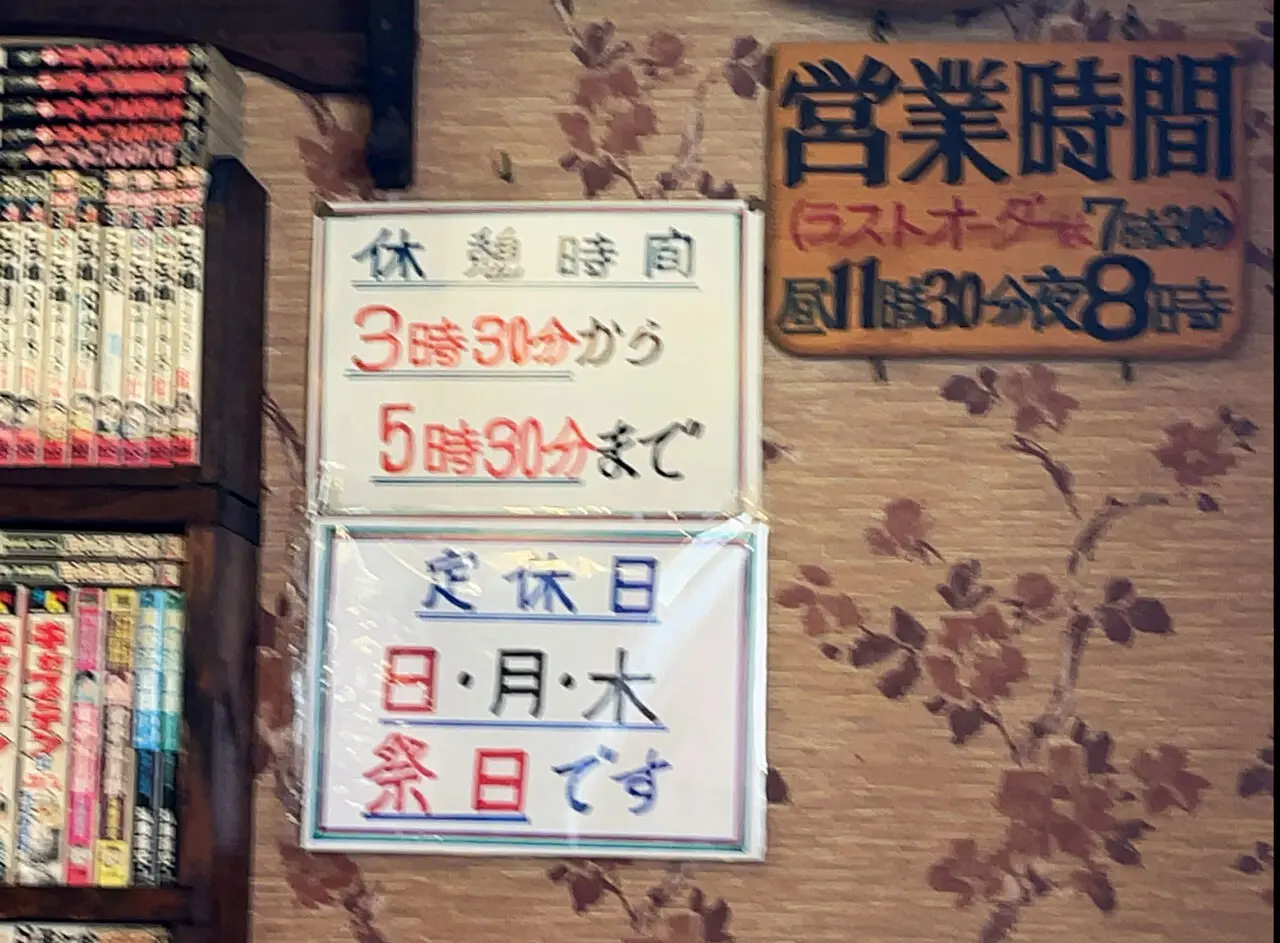 営業時間
(ラストオーダーは7時30分)
昼11時30分夜8時
休憩時間
3時30分から
5時30分まで
定休日
日・月・木
祭日です